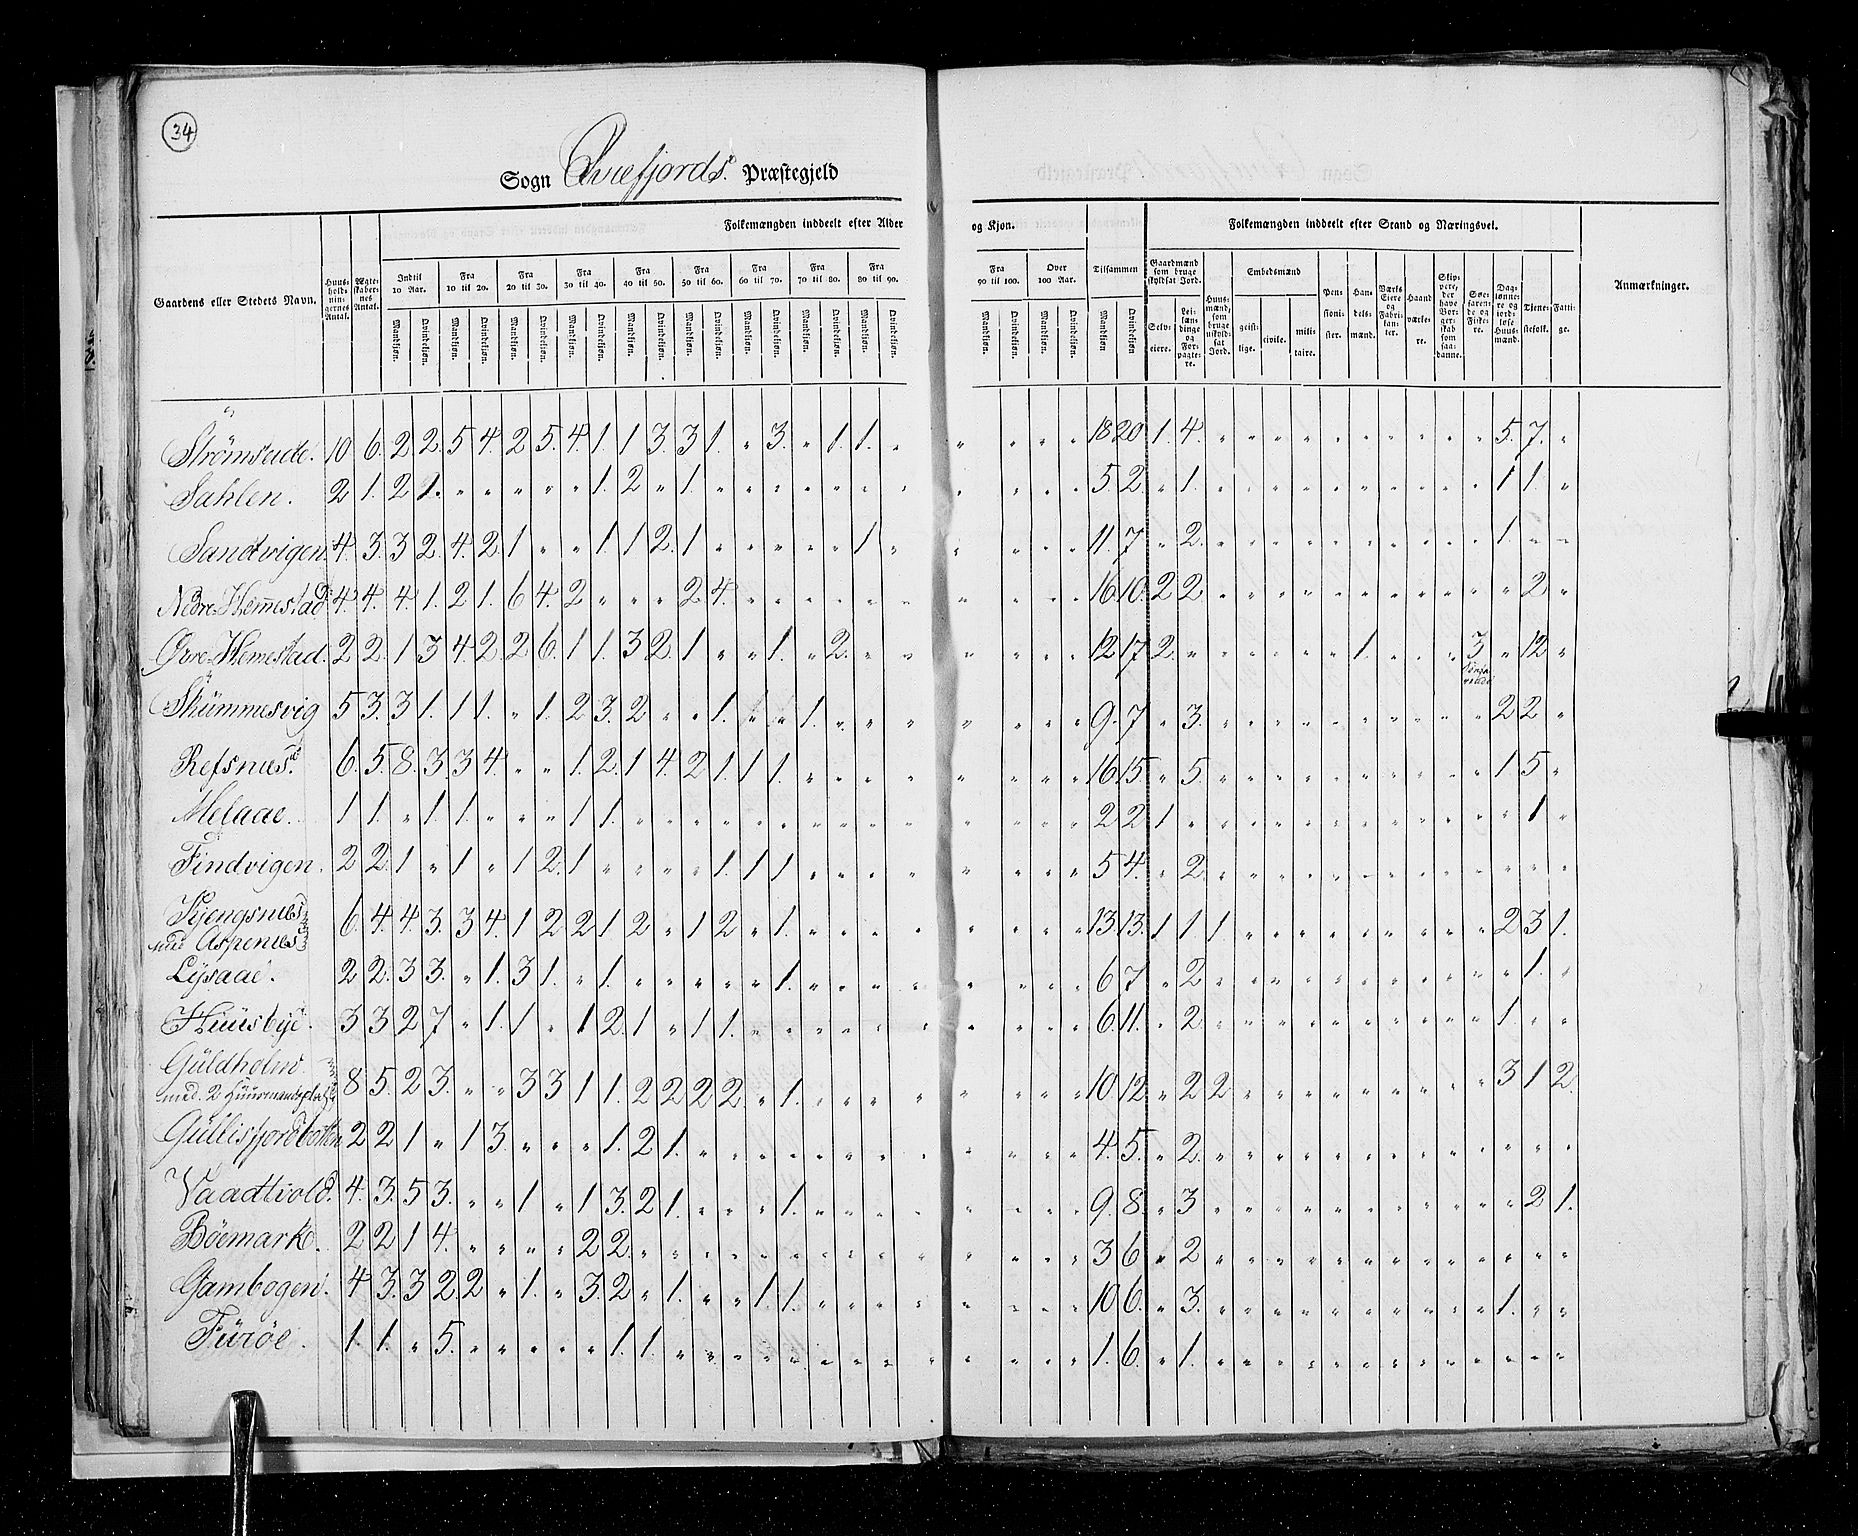 34
Sogn Qvæfjords Præstegjeld
Folkemængden inddeelt efter Alder og Kjøn. Folkemængden inddeelt efter Stand og Næringsvei.
Gaardens eller Stedets Navn. Huus-holdningernes Antal. Ægteskabernes Antal. Indtil 10 Aar. Fra 10 til 20. Fra 20 til 30. Fra 30 til 40. Fra 40 til 50. Fra 50 til 60. Fra 60 til 70. Fra 70 til 80. Fra 80 til 90. Fra 90 til 100. Over 100 Aar. Tilsammen Gaardmænd som bruge skyldsat Jord. Huusmænd, som bruge uskyldsat Jord. Embedsmænd Pensionister. Handelsmænd. Værks Eiere og Fabrikanter. Haandværkere. Skippere, der have Borgerskab som saadanne. Søefarende og Fiskere. Daglønnere og jordløse Huusmænd. Tjenestefolk. Fattige. Anmærkninger.
Mandkjøn. Qvindekjøn. Selveiere. Leilændinge og Forpagtere. geistlige. civile. militaire.
Strömseide. 10 6. 2 2. 5 4. 2 5. 4. 1. 1 3. 3 1. " 3. " 1. 1. " " " " " 18 20 1. 4. " " " " " " " " " " 5. 7. "
Sahlen. 2 1. 2 1. " " " " " 1. 2 " 1. " " " " " " " " " " " 5. 2. " 1. " " " " " " " " " " 1 1. "
Sandvigen. 4. 3. 3 2. 4. 2. 1 " " 1. 1 2. 1 " " " " " 1 " " " " " 11. 7. " 2. " " " " " " " " " " 1. " "
Nedre-Hemestad 4. 4. 4. 1. 2 1. 6 4. 2 " " " 2 4. " " " " " " " " " " 16. 10. 2 2. " " " " " " " " " " " 2. "
Øvre-Hemestad. 2 2. 1 3 4. 2. 2 6. 1 1. 3 2. 1 " " 1. " 2. " " " " " " 12 17 2. " " " " " " 1. " " " 3 " 12 "
Skümmesvig 5 3. 3 1. 1 1. " 1. 2 3. 2 " " 1. " " 1. " " " " " " " 9. 7. " 3. " " " " " " " " " " 2 2. "
Refsnæs. 6. 5. 8. 3. 3 4. " " 1. 2. 1 4. 2 1. 1 1. " " " " " " " " 16 15. " 5. " " " " " " " " " " 1 5. "
Melaae. 1 1. " 1. 1. " " " 1 1. " " " " " " " " " " " " " " 2 2. 1 " " " " " " " " " " " " 1. "
Findvigen. 2 2. 1 " 1 " 1 2. 1 " " " " 1. 1 1. " " " " " " " " 5 4. " 2. " " " " " " " " " " " " "
Kjengsnæs
med Aspenæs 6. 4. 4. 3. 3 4. 1 2 2 1 2 " 1 2. " 1. " " " " " " " " 13 13. 1 1 1. " " " " " " " " " 2 3 1.
Lysaae. 2 2. 3 3. " 1. 3 1. " 1. " " " " " 1. " " " " " " " " 6 7. " 2. " " " " " " " " " " " 1. "
Huusbye. 3 3 2 7 " 1. 1 " 1 2. 1 " 1 1. " " " " " " " " " " 6. 11. " 2. " " " " " " " " " " 1. " "
Güldholm
med 2 Huusmandspladse 8 5. 2 3. " " 3 3 1 1. 2 2 2 2. " 1. " " " " " " " " 10 12 " 2 2 " " " " " " " " " 3 1 2.
Gullisfjordbotten 2 2 1 " 1 3. " " " 1. 2 1. " " " " " " " " " " " " 4. 5. " 2. " " " " " " " " " " " " "
Vaadtvold. 4. 3. 5 3. " " 1 " 1 3. 2 1. " " " 1. " " " " " " " " 9. 8. " 3. " " " " " " " " " " " 2 1.
Böemark. 2 2 1 4. " " " " 2 2. " " " " " " " " " " " " " " 3 6. " 2. " " " " " " " " " " " " "
Gambogen. 4 3. 3 2. 2 " 1. " 3. 2 " 1. " " 1 1. " " " " " " " " 10 6. " 3. " " " " " " " " " " 1. " "
Füröe. 1. 1. " 5. " " " " " 1. 1. " " " " " " " " " " " " " 1. 6. " 1. " " " " " " " " " " " " "